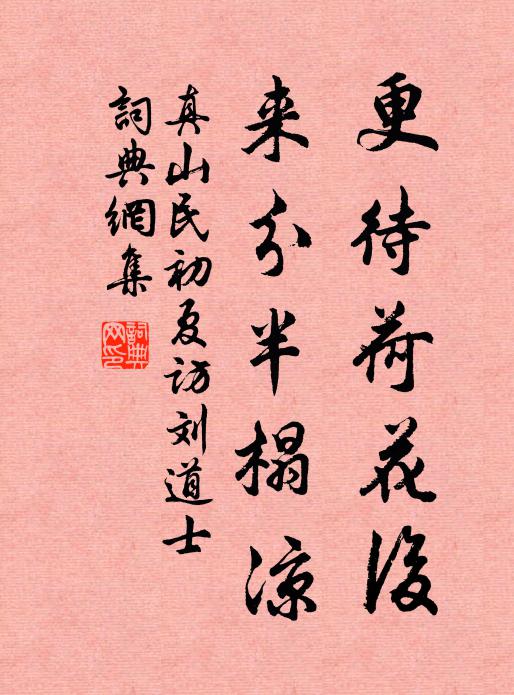 更待荷花後
来分半榻涼
真山民初夏訪刘道士
詞典網集
詞典網印